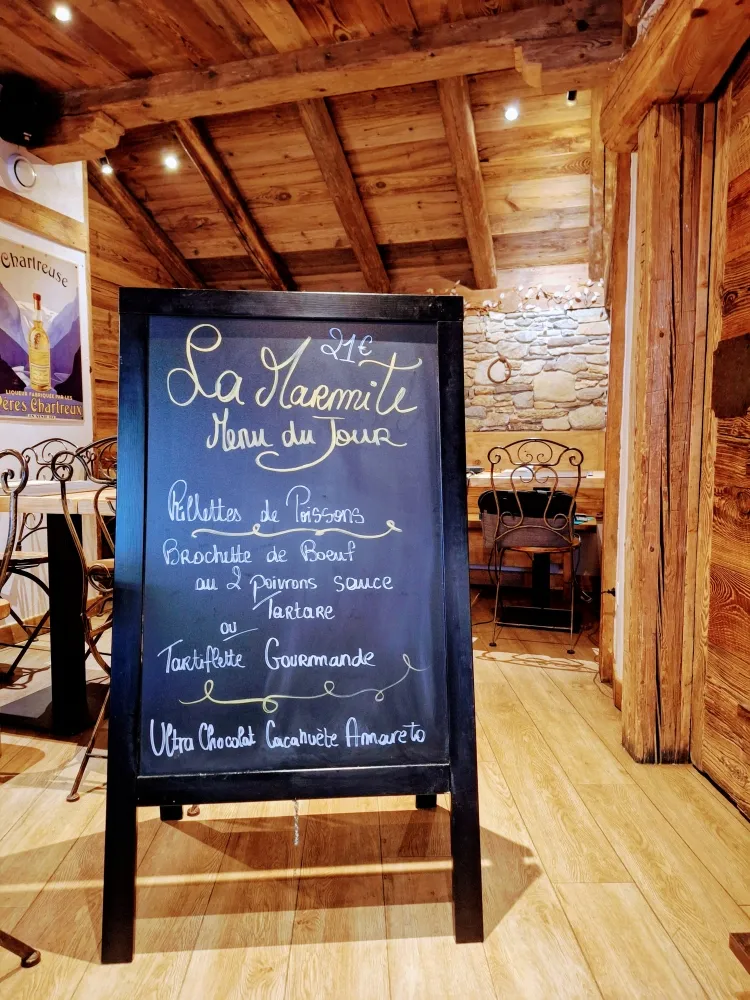 Chartreuse
LIQUEUR FABRIQUÉE PAR LES
Pères Chartreux
21€
La Marmite
Menu du Jour
Rillettes de Poissons
Brochette de Boeuf
au 2 poivrons sauce
Tartare
ou
Tartiflette Gourmande
Ultra Chocolat Cacahuète Amareto